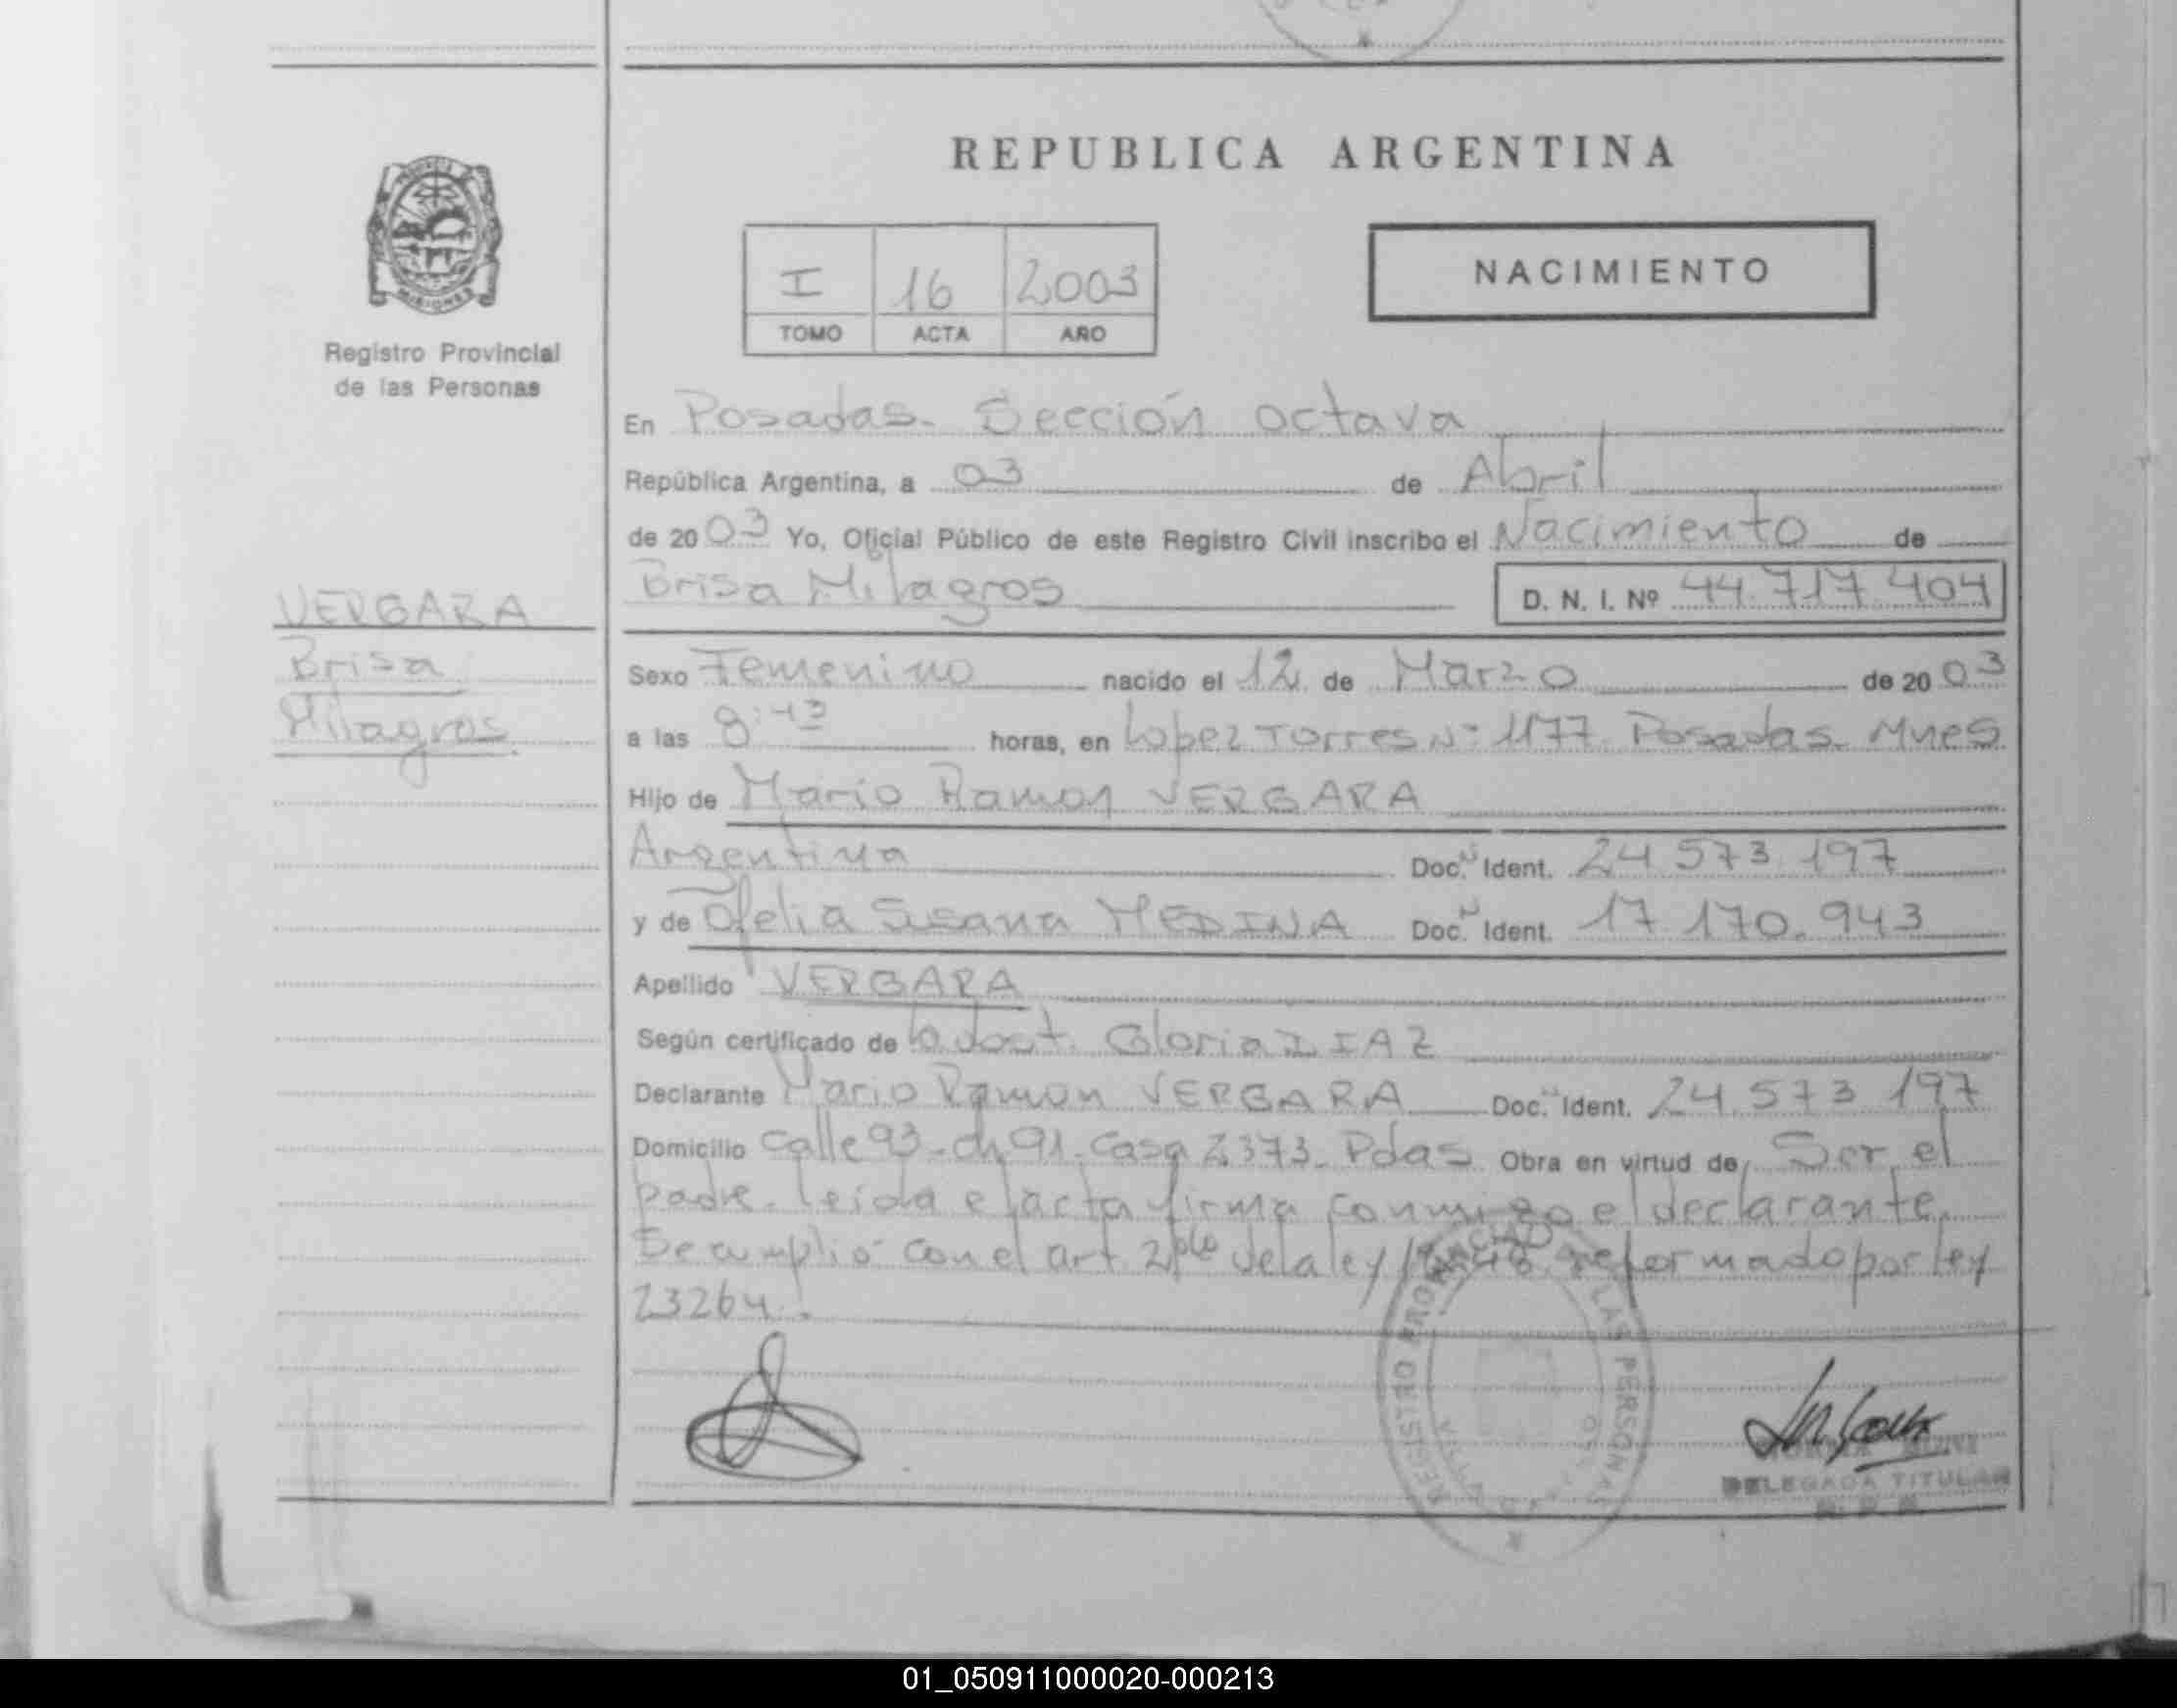 REPUBLICA ARGENTINA
PROVINCIA DE
MISIONES
Registro Provincial
de las Personas
I 16 2003
TOMO ACTA AÑO
NACIMIENTO
En Posadas - Sección octava
República Argentina, a 03 de Abril
de 2003 Yo, Oficial Público de este Registro Civil inscribo el Nacimiento de
Brisa Milagros D. N. I. Nº 44.717.404
VERGARA
Brisa
Milagros.
Sexo Femenino nacido el 12 de Marzo de 2003
a las horas, en Lopez Torres Nº 1177. Posadas - Mnes
Hijo de Mario Ramon VERGARA
Argentina Doc. N Ident. 24.573.197
y de Ofelia Susana MEDINA Doc. N Ident. 17.170.943
Apellido VERGARA
Según certificado de la doct. Gloria DIAZ
Declarante Mario Ramon VERGARA Doc. N Ident. 24.573.197
Domicilio calle 93 - ch 91 - casa 2373 - Pdas Obra en virtud de, Ser el
padre. leida el acta firma conmigo el declarante.
Se cumplió con el art de la ley reformado por ley
23264.
REGISTRO PROVINCIAL DE LAS PERSONAS
DELEGADA TITULAR
01_050911000020-000213